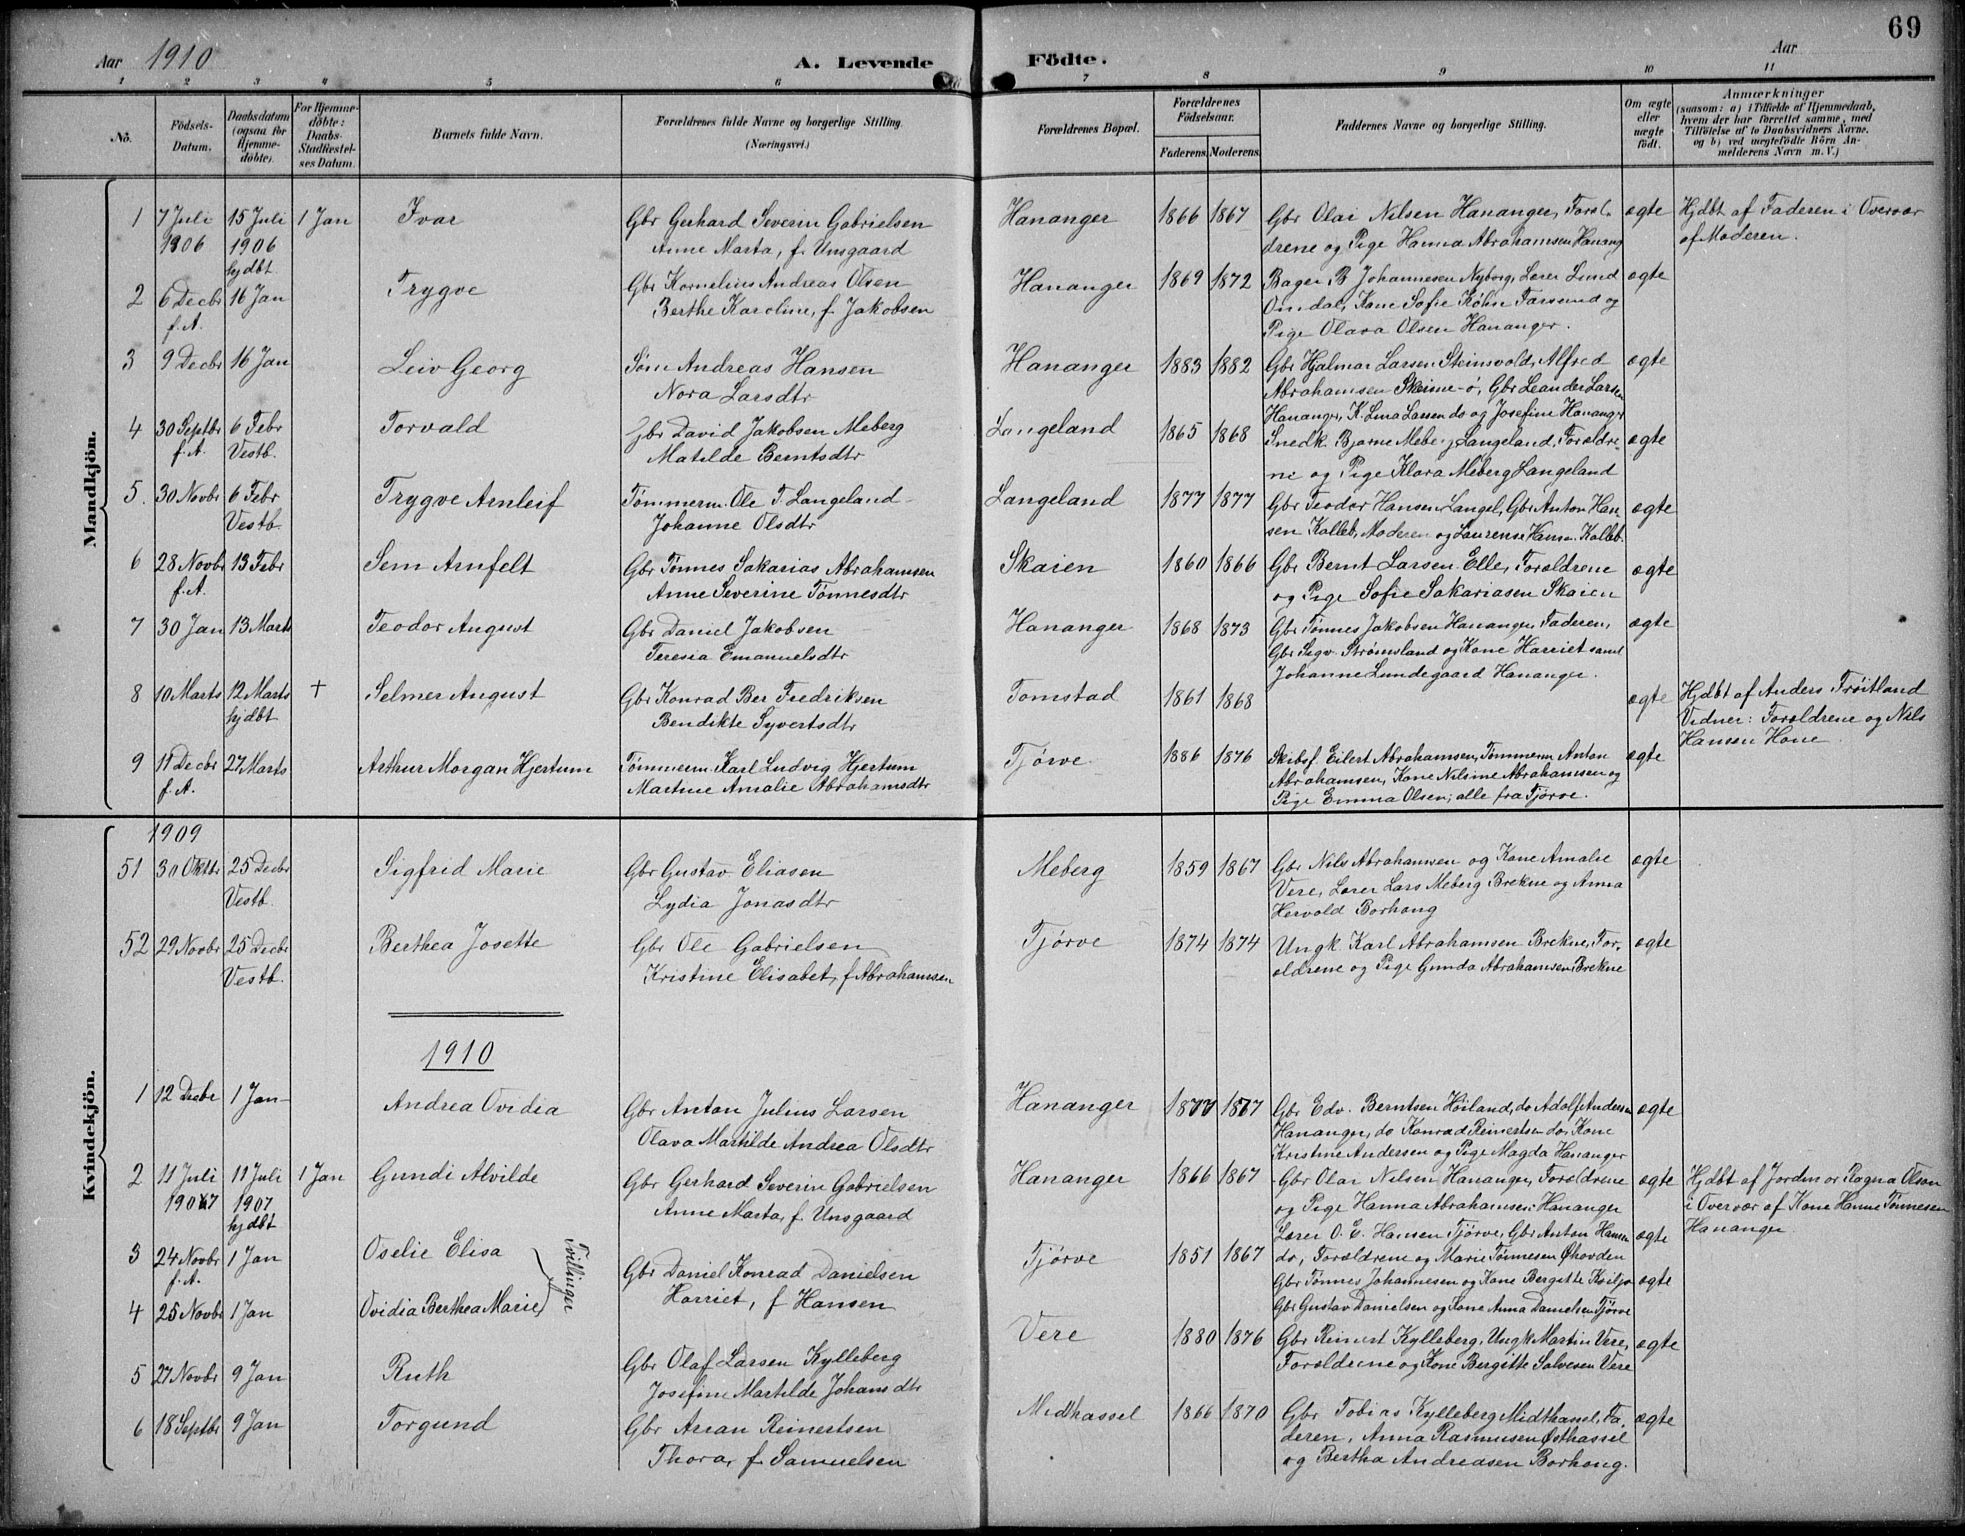 69
Aar 1910
A. Levende Födte.
Aar
1 2 3 4 5 6 7 8 9 10 11
No.
Födsels-Datum.
Daabsdatum (ogsaa for Hjemme-döbte).
For Hjemme-döbte: Daabs-Stadfæstel-ses Datum.
Barnets fulde Navn.
Forældrenes fulde Navne og borgerlige Stilling. (Næringsvei.)
Forældrenes Bopæl.
Forældrenes Födselsaar.
Faderens. Moderens.
Faddernes Navne og borgerlige Stilling.
Om ægte eller uægte födt.
Anmærkninger
(saasom: a) i Tilfælde af Hjemmedaab, hvem der har forrettet samme, med Tilföielse af to Daabsvidners Navne. og b) ved uægtefödte Börn An-melderens Navn m. V.)
Mandkjön.
1 7 Juli 15 Juli 1 Jan Ivar Gbr Gerhard Severin Gabrielsen Hananger 1866 1867 Gbr Olai Nilsen Hananger, Foræl- ægte Hjdbt af Faderen i Overvær
1906 1906 Anne Marta, f. Unsgaard drene og Pige Hanna Abrahamsen Hanang af Moderen.
hjdbt
2 6 Decbr 16 Jan Trygve Gbr Kornelius Andreas Olsen Hananger 1869 1872 Bager B Johannesen Nyborg, Lærer Lund ægte
f. A. Berthe Karoline, f. Jakobsen Omdal, Kone Sofie Köhn Farsund og
Pige Olava Olsen Hananger.
3 9 Decbr 16 Jan Leiv Georg Söm Andreas Hansen Hananger 1883 1882 Gbr Hjalmar Larsen Steinsvold, Alfred ægte
Nora Larsdtr Abrahamsen Skeime-ö, Gbr Leander Larsen
Hananger, K. Lina Larsen do og Josefine Hananger
4 30 Septbr 6 Febr Torvald Gbr David Jakobsen Meberg Langeland 1865 1868 Snedk. Bjarne Meberg Langeland, Forældre- ægte
f. A. Vestb. Matilde Berntsdtr ne og Pige Klara Meberg Langeland
5. 30 Novbr 6 Febr Trygve Arnleif Tömmerm. Ole T. Langeland Langeland 1877 1877 Gbr Teodor Hansen Langel, Gbr Anton Han- ægte
Vestb. Johanne Olsdtr sen Kalleb, Moderen og Laurense Hansn Kalleb.
6 28 Novbr 13 Febr Sem Arnfelt Gbr Tönnes Sakarias Abrahamsen Skaien 1860 1866 Gbr Bernt Larsen Elle, Forældrene ægte
f. A. Anne Severine Tönnesdtr og Pige Sofie Sakariasen Skaien
7 30 Jan 13 Marts Teodor August Gbr Daniel Jakobsen Hananger 1868 1873 Gbr Tönnes Jakobsen Hananger, Faderen, ægte
Teresia Emanuelsdtr Gbr Sigv. Strömsland og Kone Harriet samt
Johanne Lundegaard Hananger.
8 10 Marts 12 Marts † Selmer August Gbr Konrad Ber Fredriksen Tomstad 1861 1868 ægte Hjdbt af Anders Fröitland
hjdbt Bendikte Syvertsdtr Vidner: Forældrene og Nils
Hansen Hone
9 11 Decbr 27 Marts Arthur Morgan Hjertum Tömmerm. Karl Ludvig Hjertum Tjörve 1886 1876 Skibsf. Eilert Abrahamsen, Tömmerm Anton ægte
f. A. Martine Amalie Abrahamsdtr Abrahamsen, Kone Nilsine Abrahamsen og
Pige Emma Olsen, alle fra Tjörve.
Kvindekjön.
1909
51 30 Oktbr 25 Decbr Sigfrid Marie Gbr Gustav Eliasen Meberg 1859 1867 Gbr Nils Abrahamsen og Kone Amalie ægte
Vestb. Lydia Jonasdtr Vere, Lærer Lars Meberg Brekne og Anna
Hervold Borhaug
52 29 Novbr 25 Decbr Berthea Josette Gbr Ole Gabrielsen Tjörve 1874 1874 Ungk. Karl Abrahamsen Brekne, For- ægte
Vestb. Kristine Elisabet, f Abrahamsen ældrene og Pige Gunda Abrahamsen Brekne
1910
1 12 Decbr 1 Jan Andrea Ovidia Gbr Anton Julius Larsen Hananger 1877 1877 Gbr Edv. Berntsen Höiland, do Adolf Andersen ægte
Olava Martilde Andrea Olsdtr Hananger, do Konrad Reinertsen do, Kone
Kristine Andersen og Pige Magda Hananger
2 11 Juli 11 Juli 1 Jan Gundi Alvilde Gbr Gerhard Severin Gabrielsen Hananger 1866 1867 Gbr Olai Nilsen Hananger, Forældrene ægte Hjdbt af Jordmor Ragna Olsen
1907 1907 Anne Marta, f. Unsgaard og Pige Hanna Abrahamsen Hananger i Overvær af Kone Hanne Tönnesen
hjdbt Hananger
3 24 Novbr 1 Jan Oselie Elisa Tvillinger Gbr Daniel Konrad Danielsen Tjörve 1851 1867 Lærer O. E. Hansen Tjörve, Gbr Anton Hansen ægte
f. A. Harriet, f Hansen do, Forældrene og Marie Tönnesen Öhovden
4 25 Novbr 1 Jan Ovidia Berthea Marie Gbr Tönnes Johannesen og Kone Bergitte Kviljo ægte
Gbr Gustav Danielsen og Kone Anna Danielsen Tjörve
5 27 Novbr 9 Jan Ruth Gbr Olaf Larsen Kylleberg Vere 1880 1876 Gbr Reinert Kylleberg, Ungk Martin Vere, ægte
Josefine Martilde Johansdtr Forældrene og Kone Bergitte Salvesen Vere
6 18 Septbr 9 Jan Torgund Gbr Arian Reinertsen Midthassel 1866 1870 Gbr Tobias Kylleberg Midthassel, Fa- ægte
Thora, f Samuelsen deren, Anna Rasmusen Östhassel
og Bertha Andreasen Borhaug.